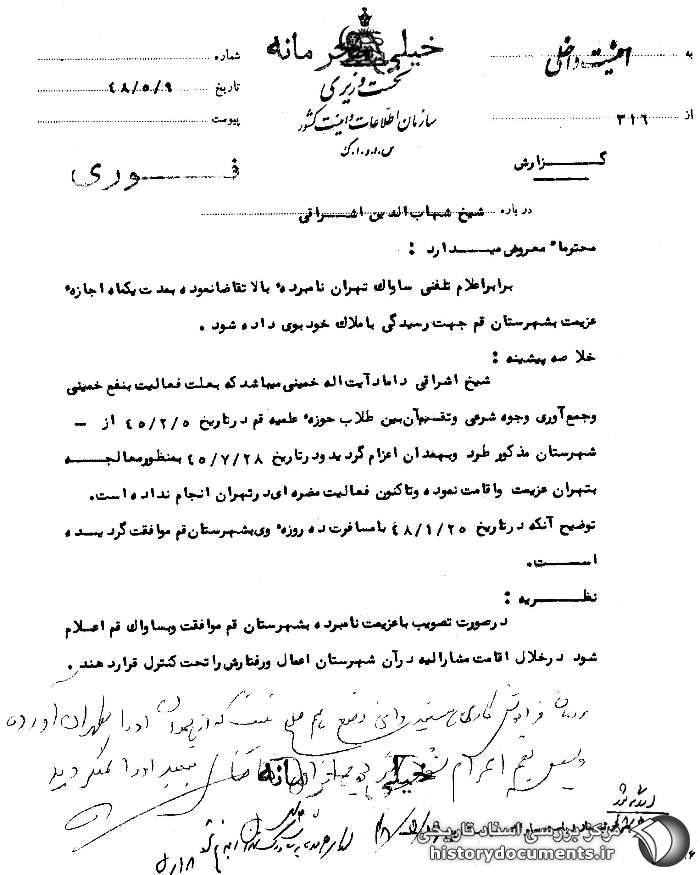 خیلی محرمانه
نخست وزیری
سازمان اطلاعات و امنیت کشور
س.ا.و.ا.ک
به امنیت داخلی
از ۳۱۶
شماره
تاریخ ۴۸/۵/۹
پیوست
گزارش
فوری
درباره شیخ شهاب الدین اشراقی
محترماً معروض میدارد :
برابر اعلام تلفنی ساواک تهران نامبرده بالا تقاضا نموده بمدت یکماه اجازه
عزیمت بشهرستان قم جهت رسیدگی باملاک خود بوی داده شود .
خلاصه پیشینه :
شیخ اشراقی داماد آیت اله خمینی میباشد که بعلت فعالیت بنفع خمینی
وجمع آوری وجوه شرعی وتقسیم آن بین طلاب حوزه علمیه قم درتاریخ ۴۵/۲/۵ از –
شهرستان مذکور طرد وبهمدان اعزام گردید ودرتاریخ ۴۵/۷/۲۸ بمنظور معالجه
بتهران عزیمت واقامت نموده وتاکنون فعالیت مضره ای درتهران انجام نداده است.
توضیح آنکه درتاریخ ۴۸/۱/۲۵ بامسافرت ده روزه وی بشهرستان قم موافقت گردیده
است.
نظریه :
درصورت تصویب باعزیمت نامبرده بشهرستان قم موافقت وبساواک قم اعلام
شود درخلال اقامت مشارالیه درآن شهرستان اعمال ورفتارش را تحت کنترل قرار دهند .
او را بطهران آورده
بقم اعزام
خیلی محرمانه
مرکز بررسی اسناد تاریخی
historydocuments.ir